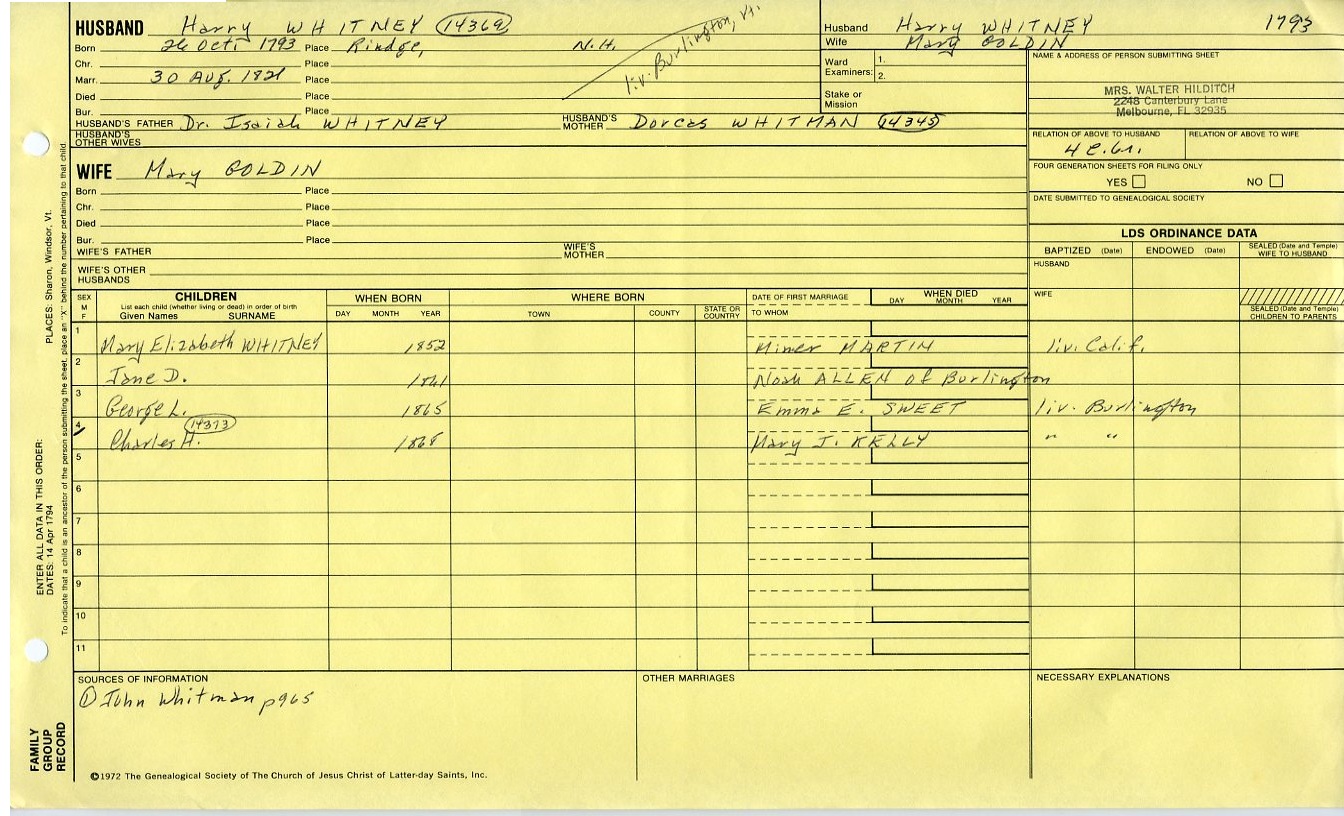 HUSBAND Harry WHITNEY (14369)
Born 26 Oct. 1793 Place Rindge, N.H.
Chr. Place
Marr. 30 Aug. 1821 Place
Died Place
Bur. Place
liv. Burlington, Vt.
HUSBAND'S FATHER Dr. Isaiah WHITNEY HUSBAND'S MOTHER Dorcas WHITMAN (14345)
HUSBAND'S OTHER WIVES
WIFE Mary GOLDIN
Born Place
Chr. Place
Died Place
Bur. Place
WIFE'S FATHER WIFE'S MOTHER
WIFE'S OTHER HUSBANDS
Husband Harry WHITNEY 1793
Wife Mary GOLDIN
Ward Examiners: 1.
2.
Stake or Mission
NAME & ADDRESS OF PERSON SUBMITTING SHEET
MRS. WALTER HILDITCH
2248 Canterbury Lane
Melbourne, FL 32935
RELATION OF ABOVE TO HUSBAND RELATION OF ABOVE TO WIFE
FOUR GENERATION SHEETS FOR FILING ONLY
YES NO
DATE SUBMITTED TO GENEALOGICAL SOCIETY
LDS ORDINANCE DATA
BAPTIZED (Date) ENDOWED (Date) SEALED (Date and Temple) WIFE TO HUSBAND
HUSBAND
WIFE
SEALED (Date and Temple) CHILDREN TO PARENTS
SEX M F CHILDREN WHEN BORN WHERE BORN DATE OF FIRST MARRIAGE WHEN DIED
List each child (whether living or dead) in order of birth
Given Names SURNAME DAY MONTH YEAR TOWN COUNTY STATE OR COUNTRY TO WHOM DAY MONTH YEAR
1 Mary Elizabeth WHITNEY 1852 Miner MARTIN liv. Calif.
2 Jane D. Noah ALLEN of Burlington
3 George L. 1865 Emma E. SWEET liv. Burlington
4 Charles H. (14373) 1868 Mary J. KELLY " "
5
6
7
8
9
10
11
SOURCES OF INFORMATION OTHER MARRIAGES NECESSARY EXPLANATIONS
① John Whitman p965
©1972 The Genealogical Society of The Church of Jesus Christ of Latter-day Saints, Inc.
PLACES: Sharon, Windsor, Vt.
ENTER ALL DATA IN THIS ORDER:
DATES: 14 Apr 1794
To indicate that a child is an ancestor of the person submitting the sheet, place an "X" behind the number pertaining to that child.
FAMILY
GROUP
RECORD